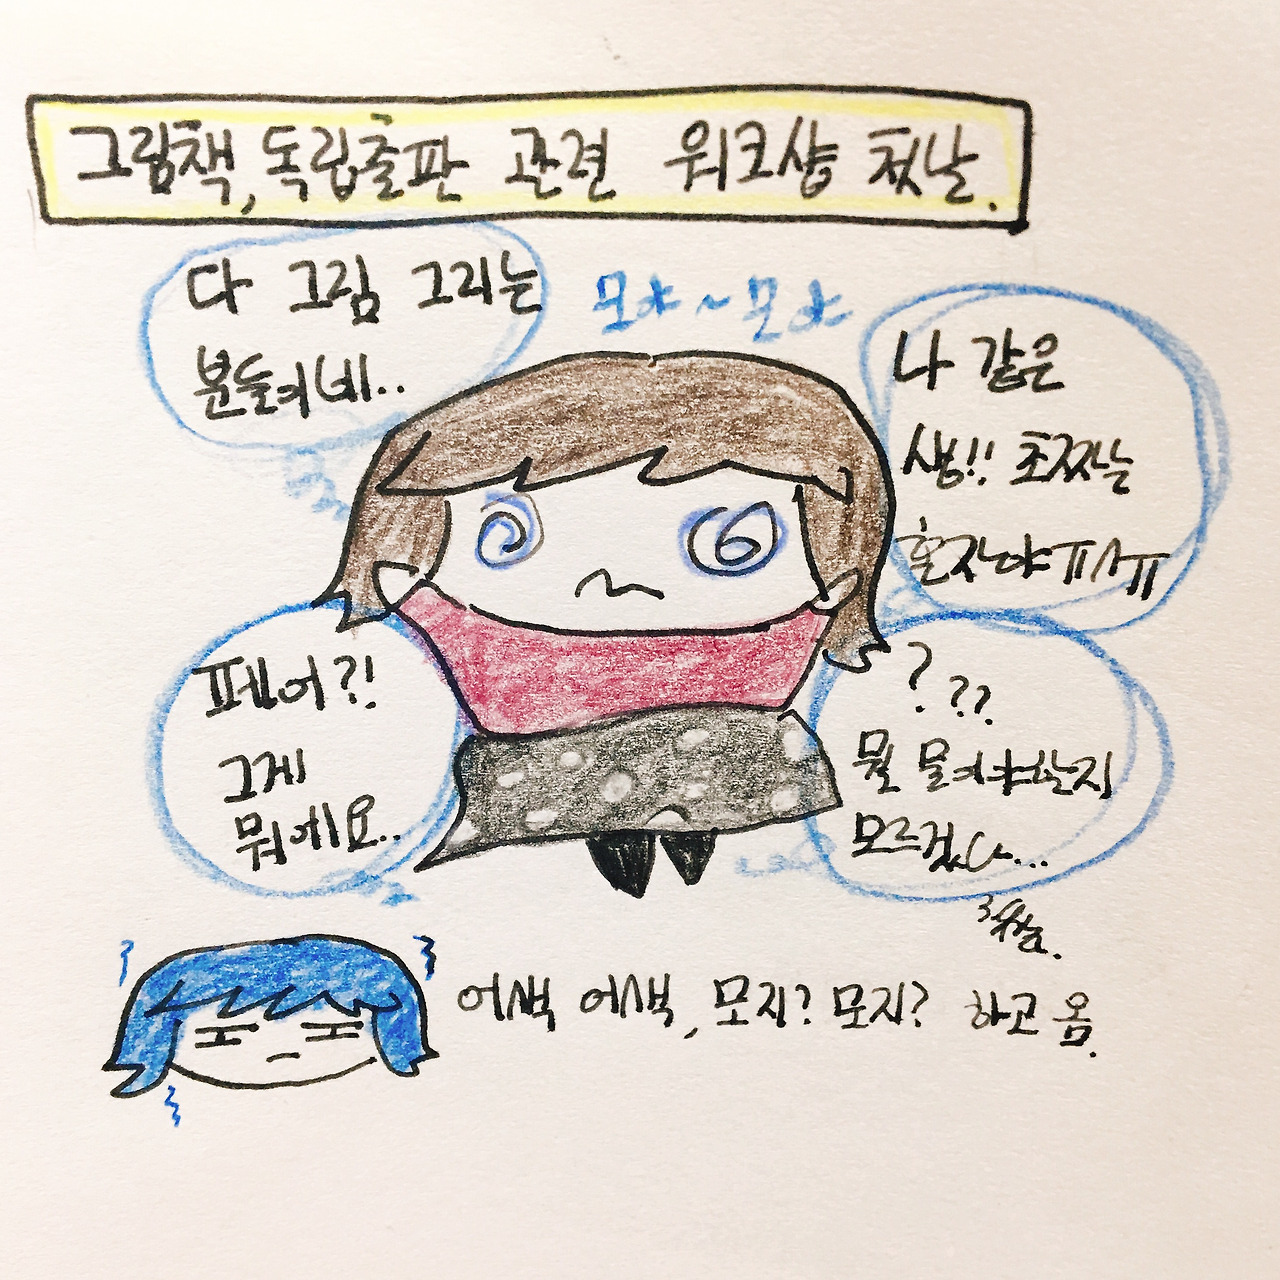 그림책, 독립출판 관련 워크샵 첫날.
다 그림 그리는
분들이네..
모야~모야
나 같은
생!! 초짜는
혼자야ㅠㅅㅠ
페어?!
그게
뭐에요..
? ??
뭘 물어야할지
모르겠다...
어색 어색, 모지? 모지? 하고 옴.